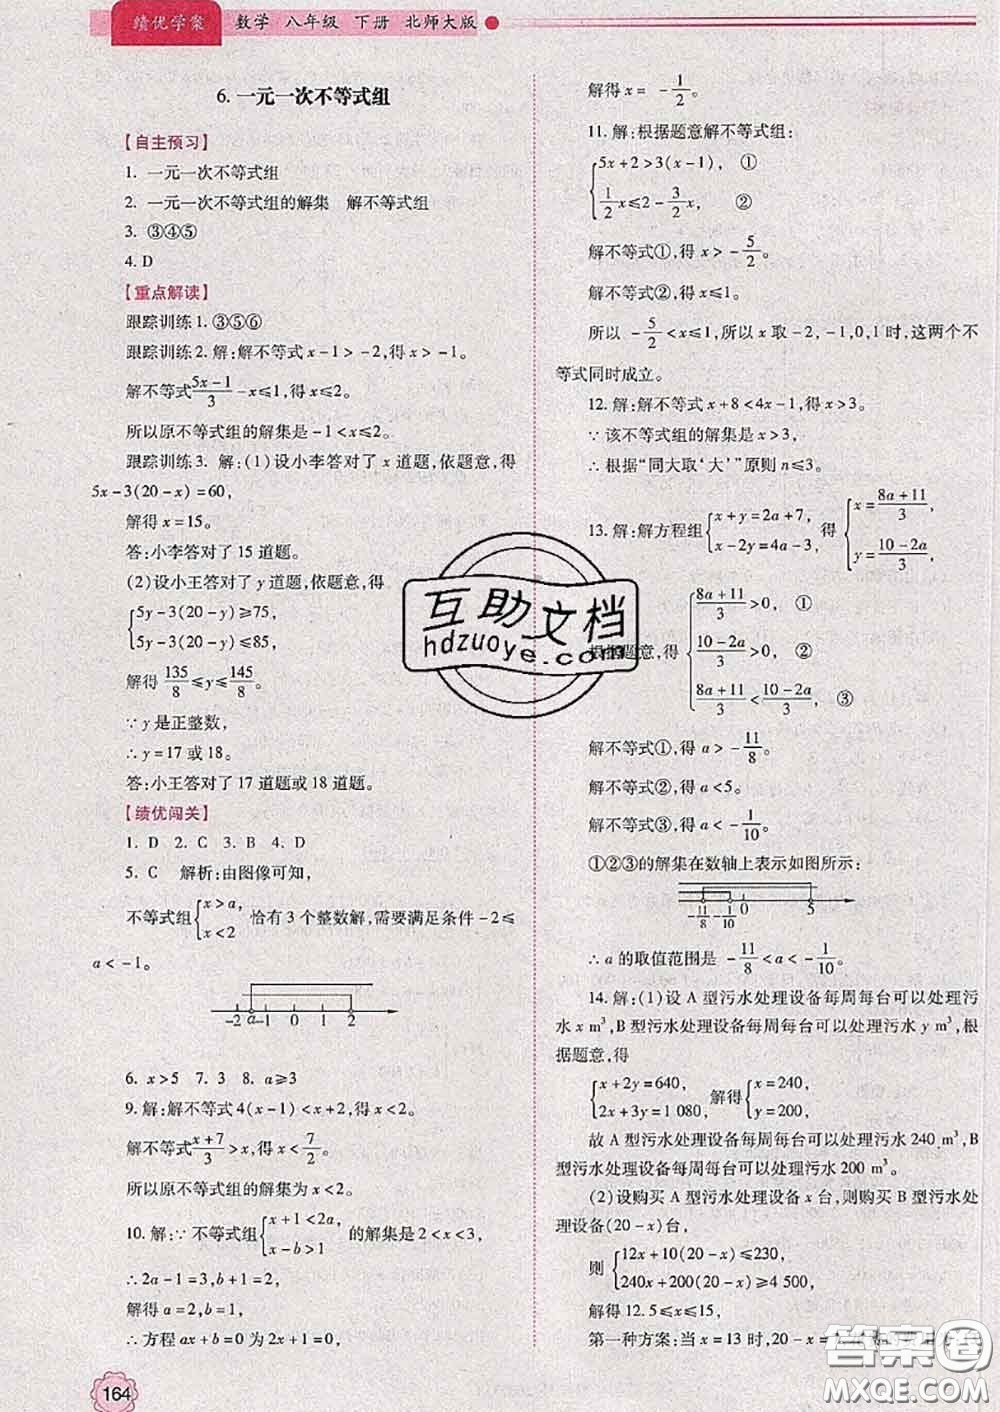 绩优学案 数学 八年级 下册 北师大版
6. 一元一次不等式组
【自主预习】
1. 一元一次不等式组
2. 一元一次不等式组的解集 解不等式组
3. ③④⑤
4. D
【重点解读】
跟踪训练1. ③⑤⑥
跟踪训练2. 解:解不等式 x-1>-2,得 x>-1。
解不等式(5x-1)/3-x≤1,得 x≤2。
所以原不等式组的解集是-1<x≤2。
跟踪训练3. 解:(1)设小李答对了 x 道题,依题意,得
5x-3(20-x)=60,
解得 x=15。
答:小李答对了 15 道题。
(2)设小王答对了 y 道题,依题意,得
{5y-3(20-y)≥75,
5y-3(20-y)≤85,
解得 135/8≤y≤145/8。
∵y 是正整数,
∴y=17 或 18。
答:小王答对了 17 道题或 18 道题。
【绩优闯关】
1. D 2. C 3. B 4. D
5. C 解析:由图像可知,
不等式组{x>a, x<2 恰有 3 个整数解,需要满足条件-2≤
a<-1。
-2 a -1 0 1 2
6. x>5 7. 3 8. a≥3
9. 解:解不等式 4(x-1)<x+2,得 x<2。
解不等式(x+7)/3>x,得 x<7/2。
所以原不等式组的解集为 x<2。
10. 解:∵不等式组{x+1<2a, x-b>1 的解集是-2<x<3,
∴2a-1=3,b+1=2,
解得 a=2,b=1,
∴方程 ax+b=0 为 2x+1=0,
164
解得 x=-1/2。
11. 解:根据题意解不等式组:
{5x+2>3(x-1), ①
1/2x≤2-3/2x, ②
解不等式①,得 x>-5/2。
解不等式②,得 x≤1。
所以 -5/2<x≤1,所以 x 取-2,-1,0,1 时,这两个不
等式同时成立。
12. 解:解不等式 x+8<4x-1,得 x>3。
∵该不等式组的解集是 x>3,
∴根据“同大取‘大’”原则 n≤3。
13. 解:解方程组{x+y=2a+7, x-2y=4a-3, 得{x=(8a+11)/3, y=(10-2a)/3,
根据题意,得{(8a+11)/3>0, ①
(10-2a)/3>0, ②
(8a+11)/3<(10-2a)/3, ③
解不等式①,得 a>-11/8。
解不等式②,得 a<5。
解不等式③,得 a<-1/10。
①②③的解集在数轴上表示如图所示:
-11/8 -1/10 0 5
∴a 的取值范围是 -11/8<a<-1/10。
14. 解:(1)设 A 型污水处理设备每周每台可以处理污
水 x m³,B 型污水处理设备每周每台可以处理污水 y m³,根
据题意,得
{x+2y=640, 2x+3y=1 080, 解得{x=240, y=200。
故 A 型污水处理设备每周每台可以处理污水 240 m³,B
型污水处理设备每周每台可以处理污水 200 m³。
(2)设购买 A 型污水处理设备 x 台,则购买 B 型污水处
理设备(20-x)台,
则{12x+10(20-x)≤230,
240x+200(20-x)≥4 500,
解得 12.5≤x≤15,
第一种方案:当 x=13 时,20-x=
互助文档
hdzuoye.com
答案圈
MXQE.COM